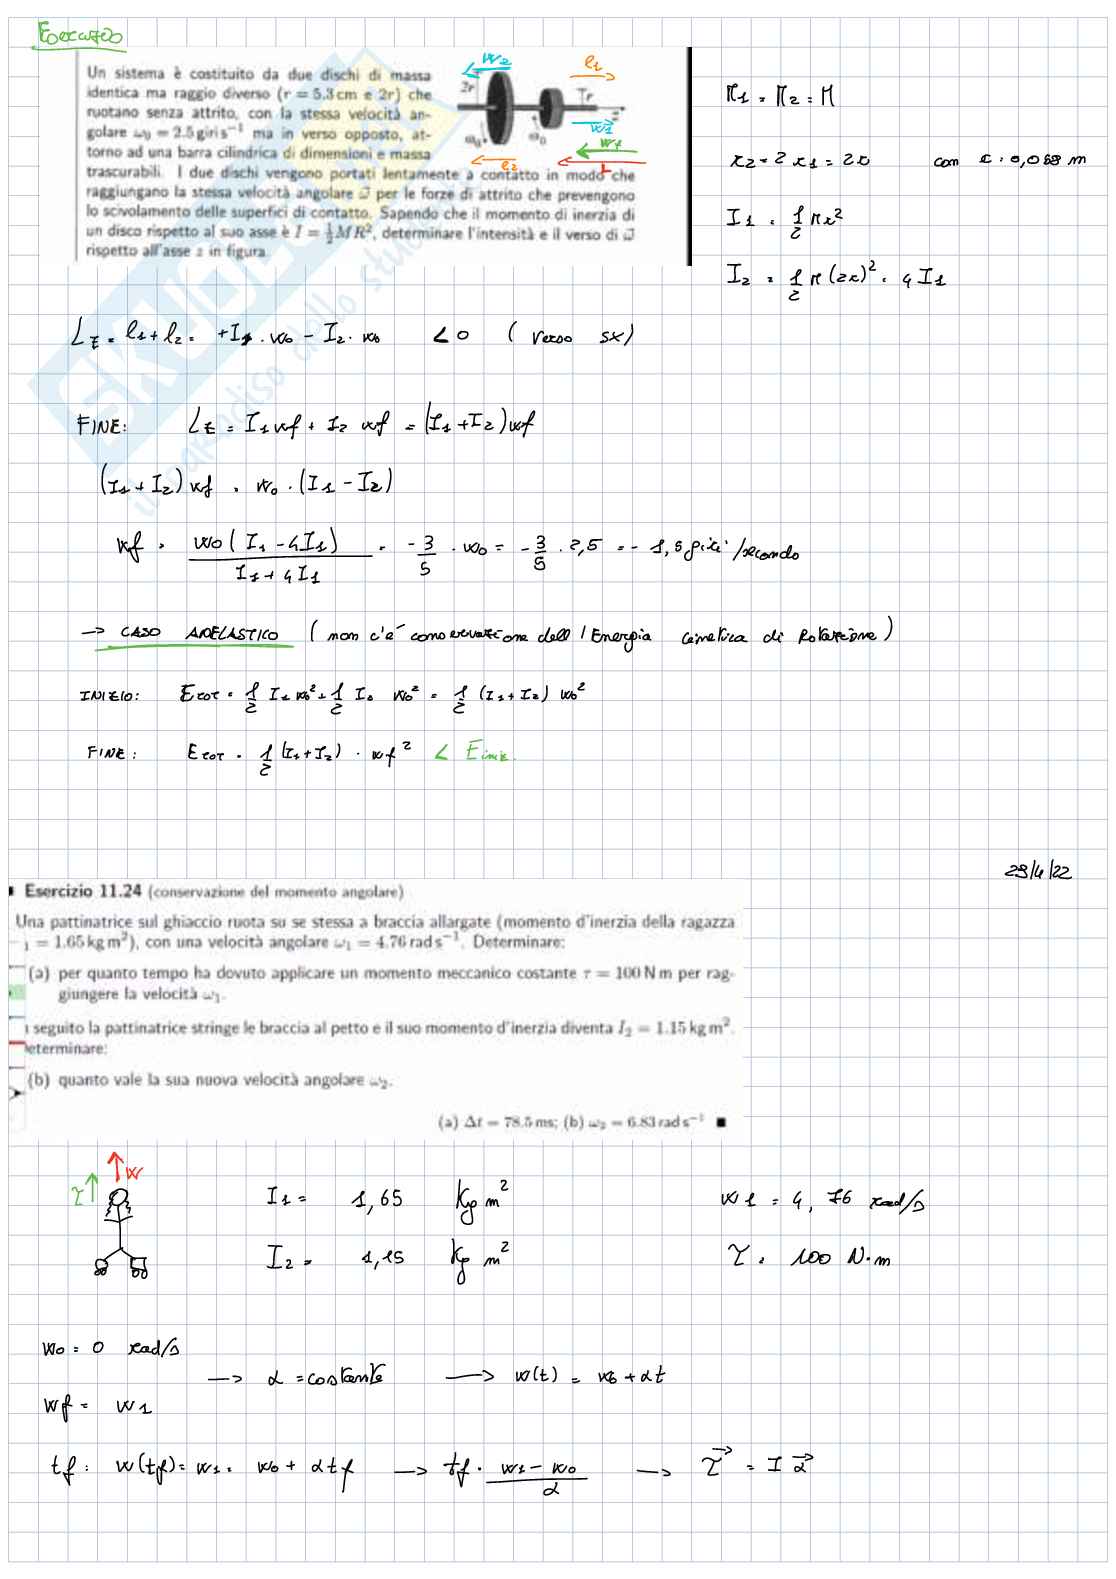 Esercizio
Un sistema è costituito da due dischi di massa
identica ma raggio diverso (r = 5.3 cm e 2r) che
ruotano senza attrito, con la stessa velocità an-
golare ω₀ = 2.5 giri s⁻¹ ma in verso opposto, at-
torno ad una barra cilindrica di dimensioni e massa
trascurabili. I due dischi vengono portati lentamente a contatto in modo che
raggiungano la stessa velocità angolare ω⃗ per le forze di attrito che prevengono
lo scivolamento delle superfici di contatto. Sapendo che il momento di inerzia di
un disco rispetto al suo asse è I = ½MR², determinare l'intensità e il verso di ω⃗
rispetto all'asse z in figura.
w2
l1
2r
r
z
ω₀
ω₀
w1
wf
l2
M1 = M2 = M
r2 = 2 r1 = 2r con r = 0,053 m
I1 = 1/2 Mr²
I2 = 1/2 M (2r)² = 4I1
Lz = l1 + l2 = +I1 · w0 - I2 · w0 < 0 ( verso sx)
FINE: Lz = I1 wf + I2 wf = (I1 + I2) wf
(I1 + I2) wf = w0 · (I1 - I2)
wf = w0 ( I1 - 4I1) / I1 + 4I1 = - 3/5 · w0 = - 3/5 · 2,5 = - 1,5 giri /secondo
→ CASO ANELASTICO ( non c'è conservazione dell'Energia Cinetica di Rotazione )
INIZIO: Erot = 1/2 I1 w0² + 1/2 I2 w0² = 1/2 (I1 + I2) w0²
FINE: Erot = 1/2 (I1 + I2) · wf² < Einiz.
29/4/22
Esercizio 11.24 (conservazione del momento angolare)
Una pattinatrice sul ghiaccio ruota su se stessa a braccia allargate (momento d'inerzia della ragazza
₁ = 1.65 kg m²), con una velocità angolare ω₁ = 4.76 rad s⁻¹. Determinare:
(a) per quanto tempo ha dovuto applicare un momento meccanico costante τ = 100 N m per rag-
giungere la velocità ω₁.
n seguito la pattinatrice stringe le braccia al petto e il suo momento d'inerzia diventa I₂ = 1.15 kg m².
eterminare:
(b) quanto vale la sua nuova velocità angolare ω₂.
(a) Δt = 78.5 ms; (b) ω₂ = 6.83 rad s⁻¹ ■
τ w
I1 = 1,65 Kg m² w1 = 4,76 rad/s
I2 = 1,15 Kg m² τ = 100 N·m
w0 = 0 rad/s
→ α = costante → w(t) = w0 + αt
wf = w1
tf : w(tf) = w1 = w0 + α tf → tf = w1 - w0 / α → τ⃗ = I α⃗